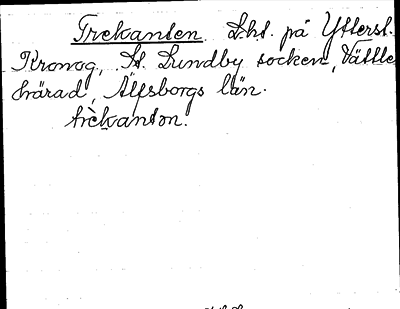 Trekanten. Lht. på Ytterst.
Kronog, St. Lundby socken, Vättle
härad, Älfsborgs län.
trèkanton.